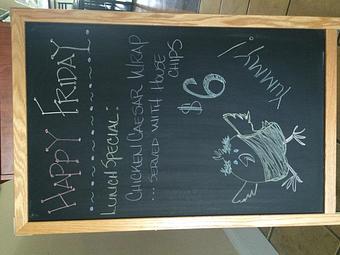 HAPPY FRIDAY
LUNCH SPECIAL:
CHICKEN CAESAR WRAP
... SERVED WITH HOUSE
CHIPS
$6
YUMMY!